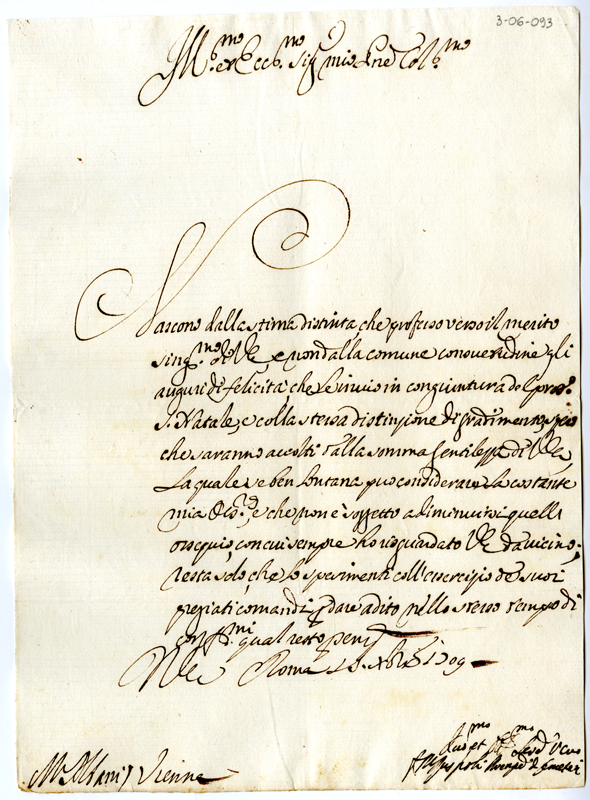 3-06-093
Ill.mo et Ecc.mo Sig.r mio P.ne Col.mo
Nascono dalla stima distinta, che professo verso il merito
sing.mo di V.E., e non dalla comune consuetudine gli
auguri di felicità, che le invio in congiuntura del pros.o
S. Natale, e colla stessa distinzione di gradimento spero
che saranno accolti dalla somma gentilezza di V.E.,
La quale se ben lontana può considerare la costante
mia e che non è soggetto a diminuirsi quelli
ossequi, con cui sempre ho risguardato V.E. da vicino;
resta solo, che lo sperimenti coll'esercizio de suoi
pregiati comandi, p dare adito nello stesso tempo di
qual resto
V.E. Roma 1709
M. Albani, Vienna